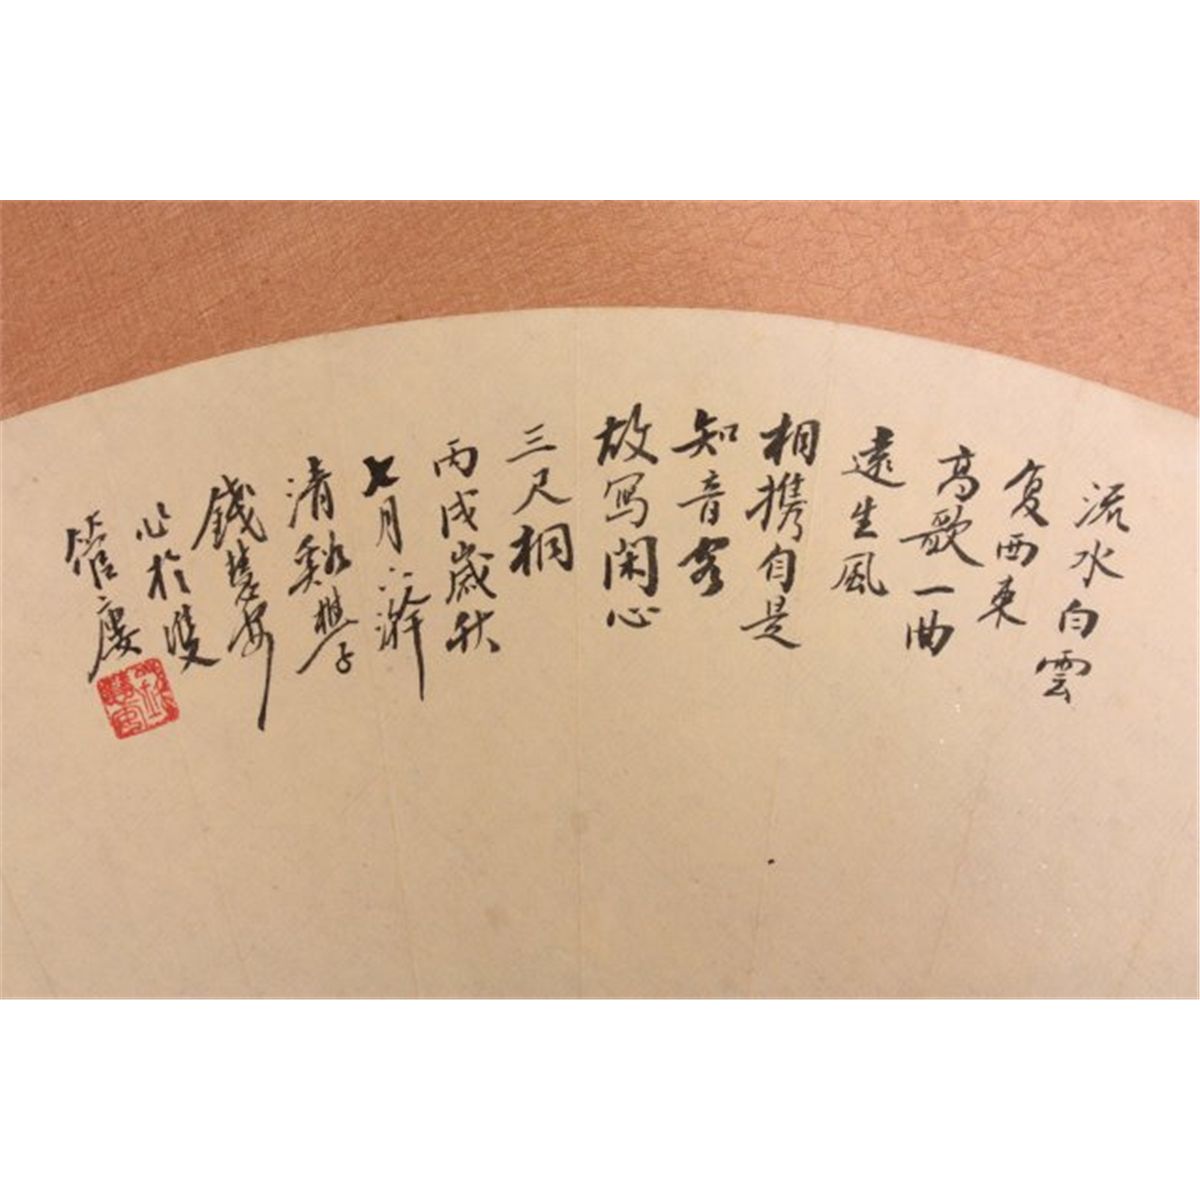 流水白雲
复西東
高歌一曲
遠生風
相携自是
知音客
故寫閑心
三尺桐
丙戌歲秋
七月
清谿樵子
錢慧安
於雙
管廔